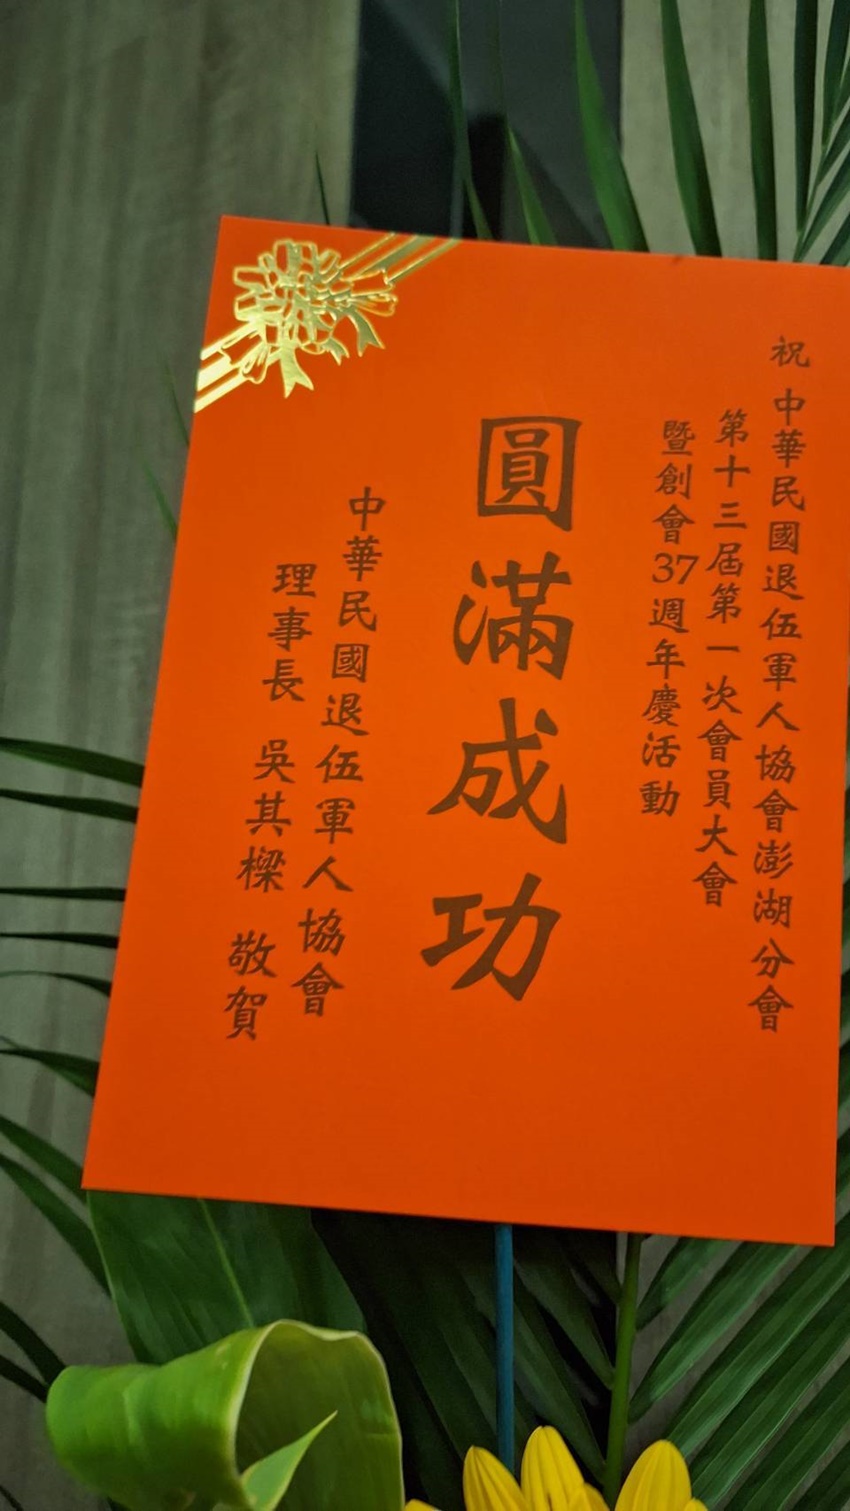 祝 中華民國退伍軍人協會澎湖分會
第十三屆第一次會員大會
暨創會37週年慶活動
圓滿成功
中華民國退伍軍人協會
理事長 吳其樑 敬賀